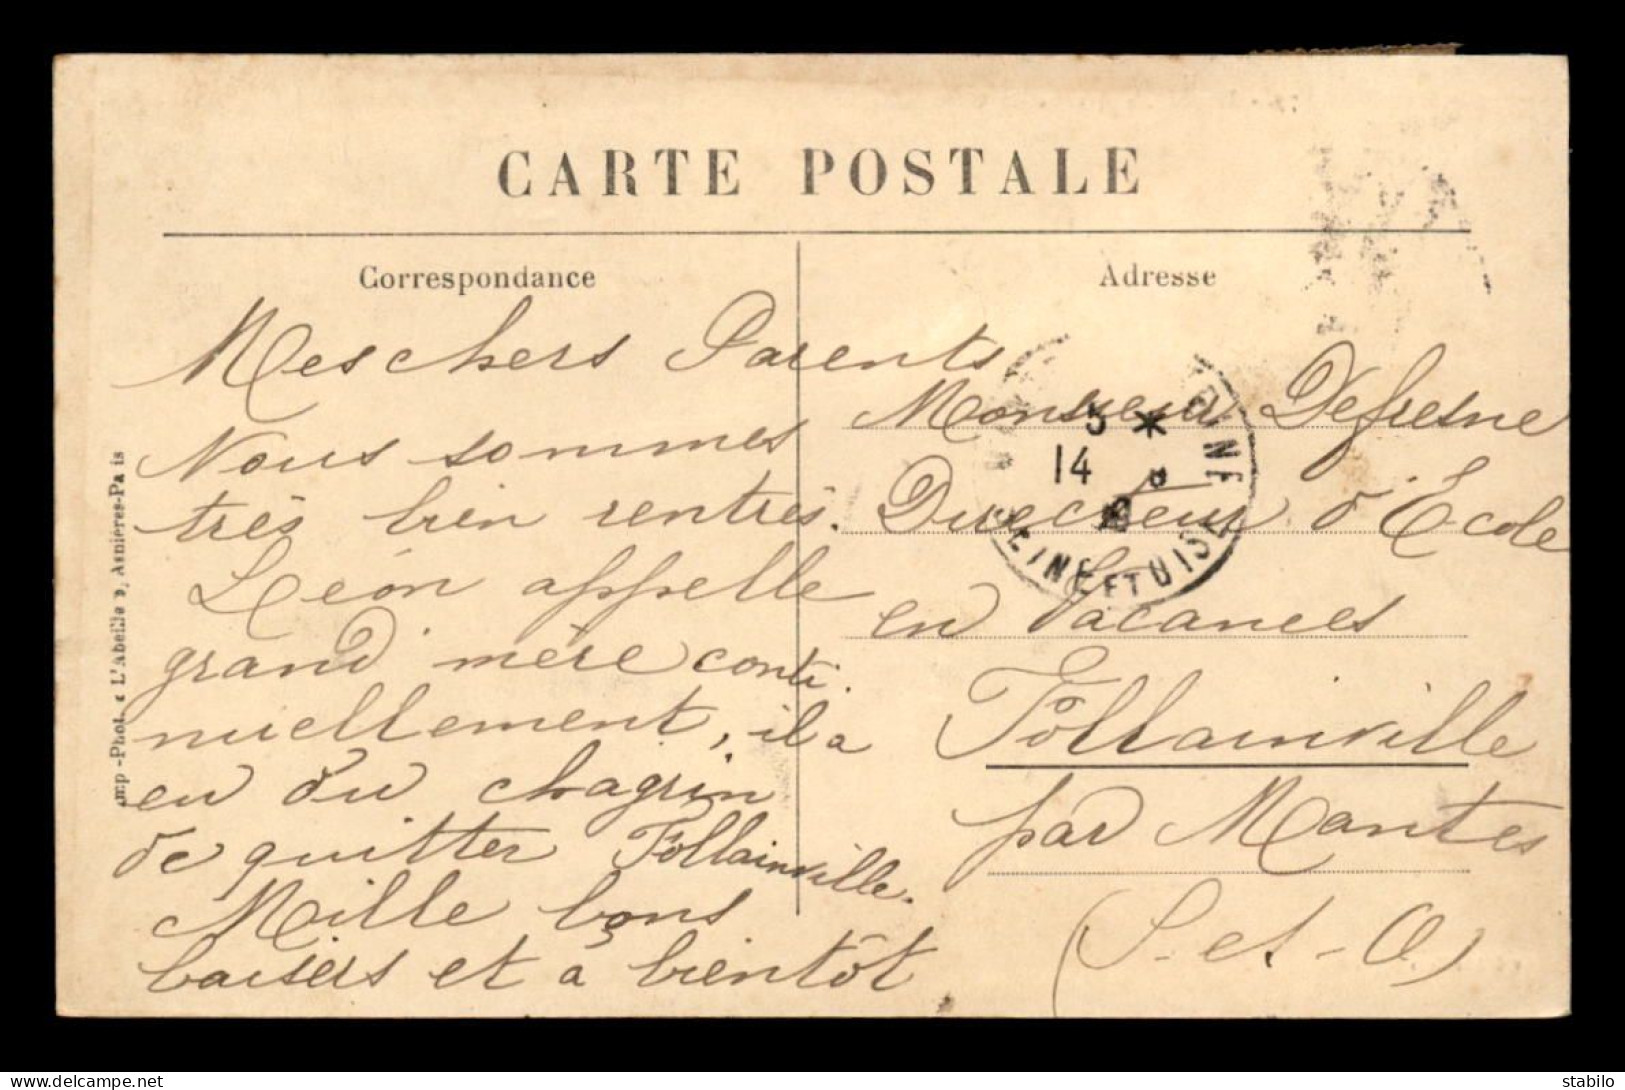 CARTE POSTALE
Correspondance
Adresse
Mes chers Parents
Nous sommes
très bien rentrés.
Léon appelle
grand mère conti
nuellement, il a
eu du chagrin
de quitter Follainville.
Mille bons
baisers et à bientôt
Monsieur Defresne
Directeur d'École
en Vacances
Follainville
par Mantes
(S.-et-O.)
5 *
14 8
SEINE ET OISE
Imp.-Phot. « L'Abeille », Asnières-Paris
stabilo